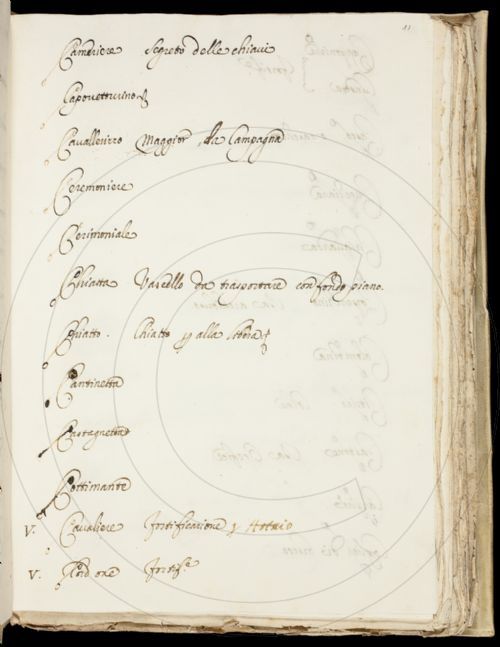 11
Camoriere Segreto delle chiavi
Capouetturino
Cavallerizzo Maggior della Campagna
Ceremoniere
Cerimoniale
Chiatta Vascello da trasportare con fondo piano.
Chiatto. Chiatto alla
Cantinetta
Castagneton
Cottimante
V. Cavaliere fortificatione
V. Cordone fortif.e